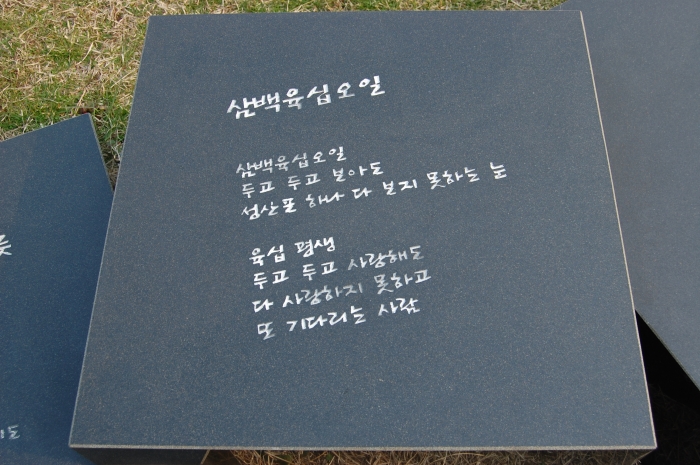 삼백육십오일
삼백육십오일
두고 두고 보아도
성산포 하나 다 보지 못하는 눈
육십 평생
두고 두고 사랑해도
다 사랑하지 못하고
또 기다리는 사람